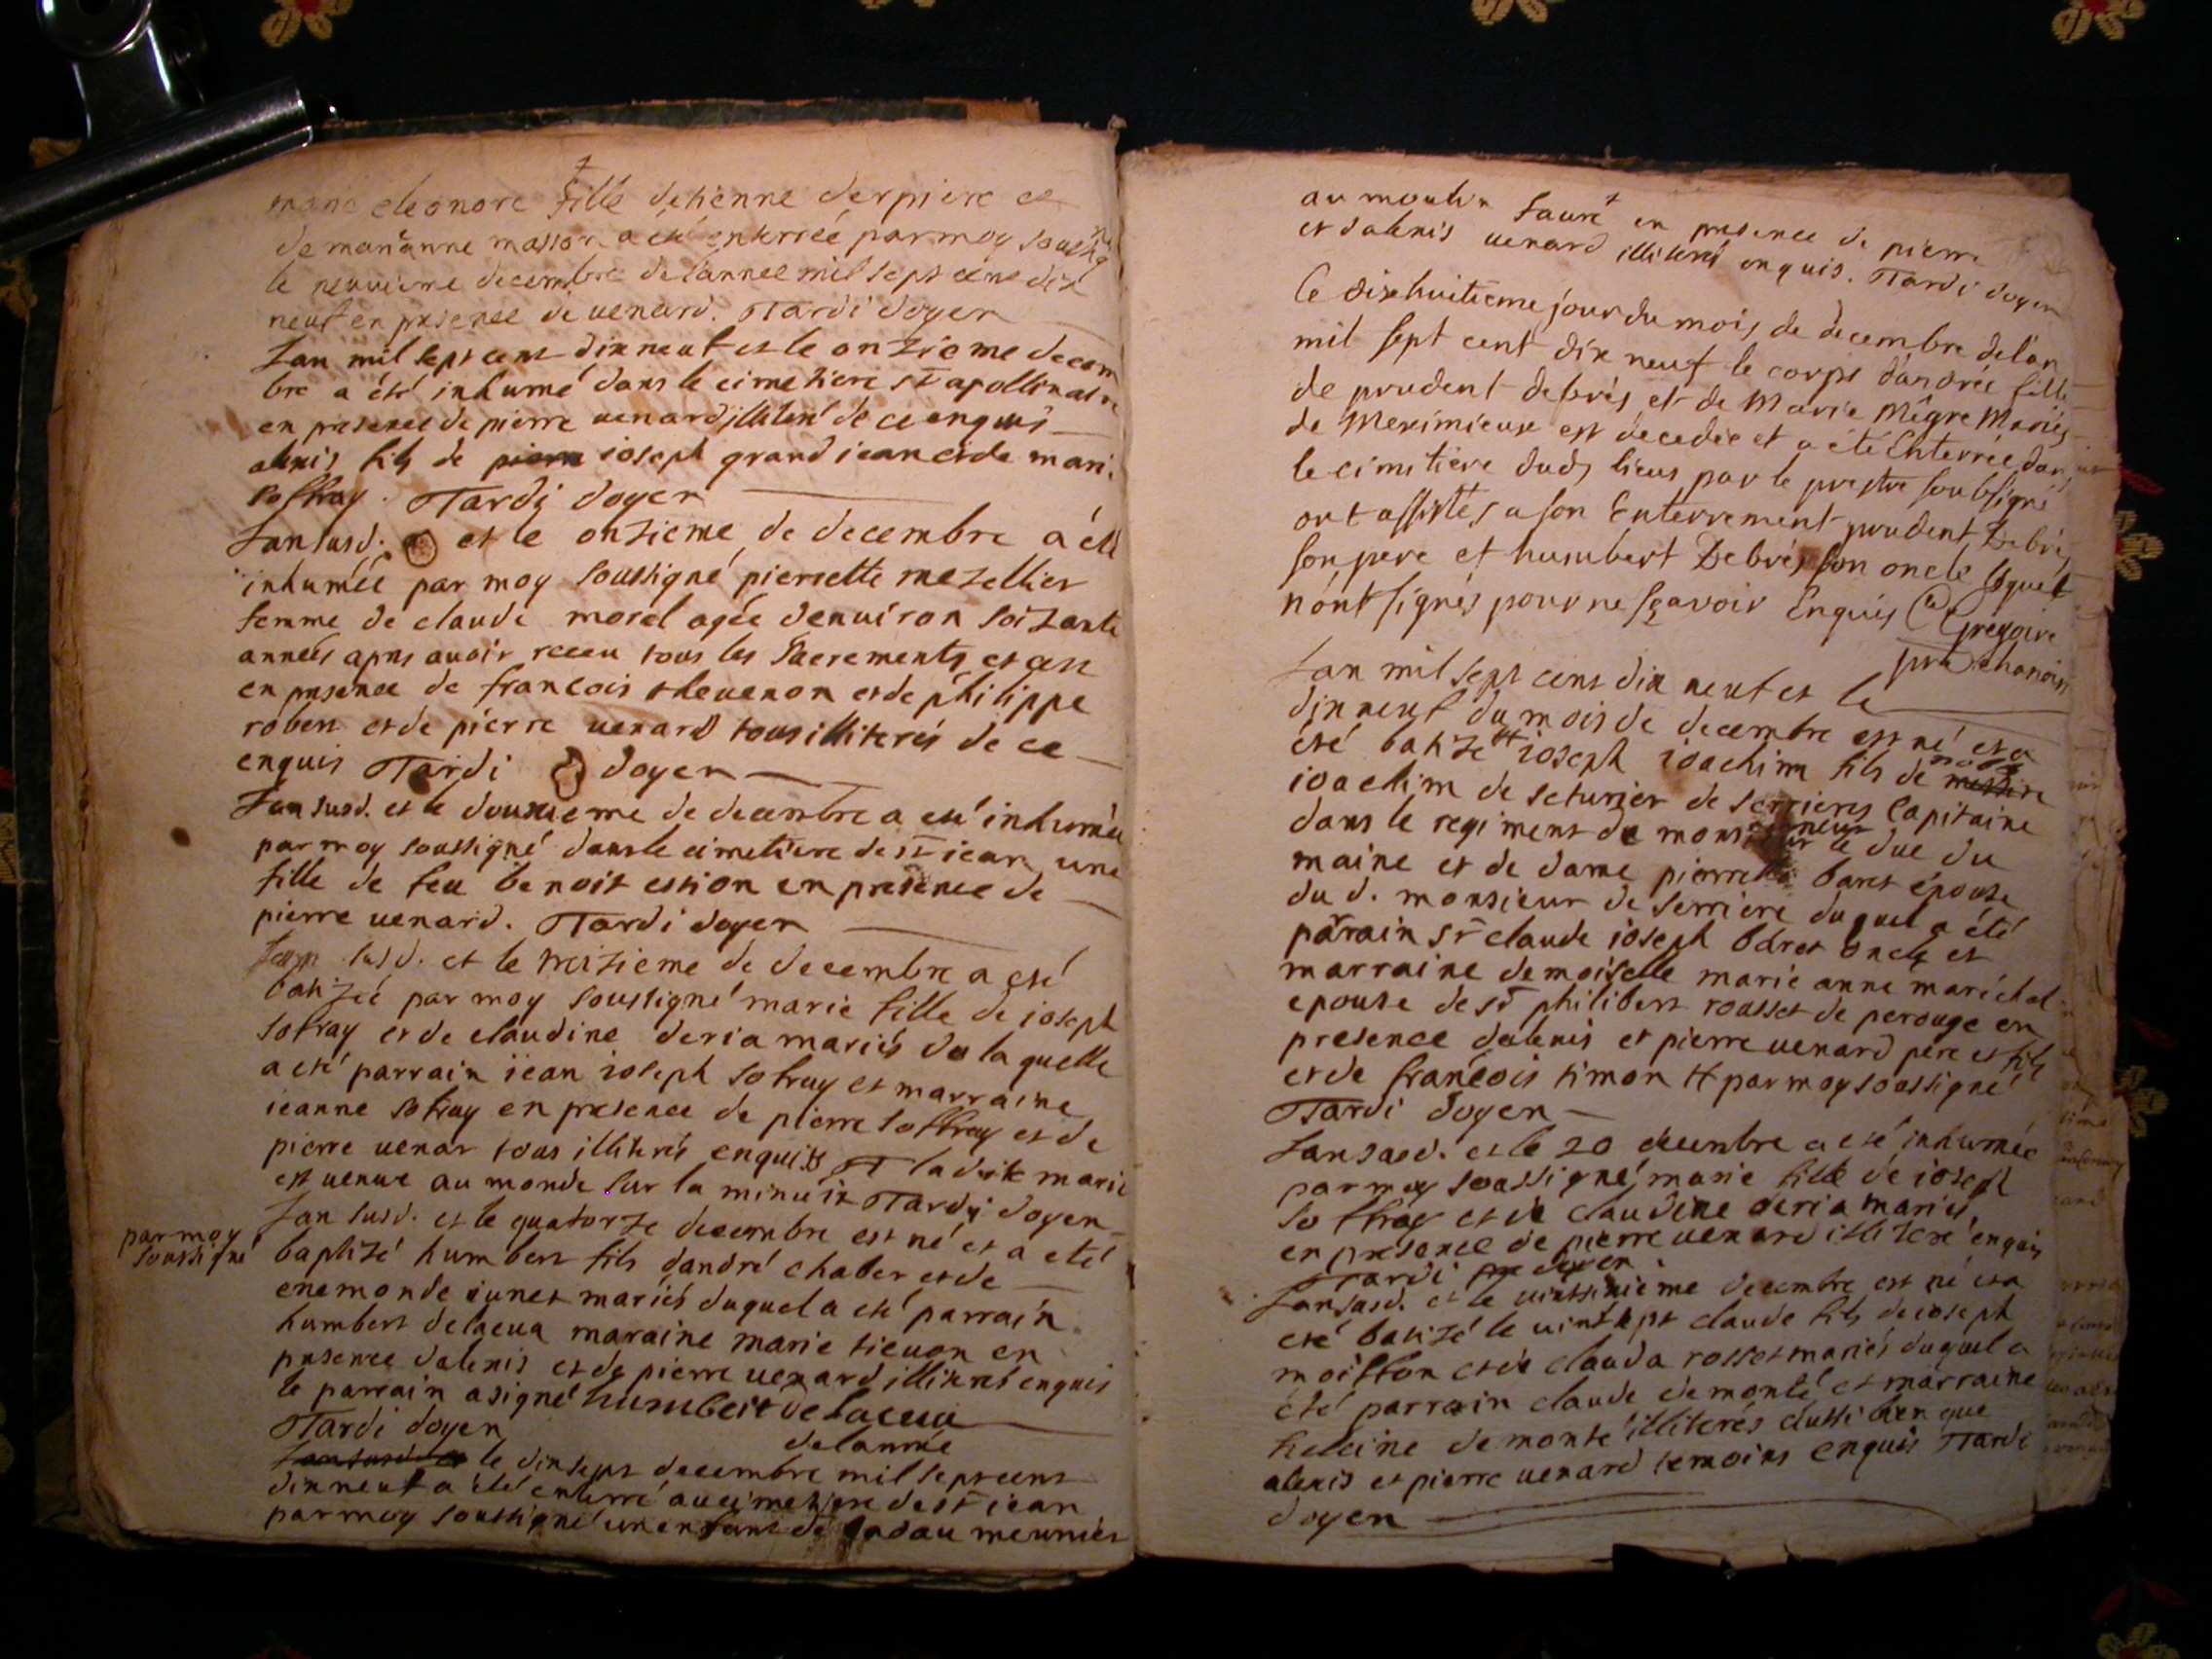 marie eleonore fille detienne derpierre et
de marianne masson a été enterréé par moy soussigné
le neuvieme decembre de lannee mil sept cent dix
neuf en presence de venard. Tardi doyen
Lan mil sept cent dix neuf et le onzieme decem
bre a été inhumé dans le cimetiere st apollinaire
en presence de pierre venard illiteré de ce enquis
alexis fils de pierre ioseph grand iean et de mari
soffray. Tardi doyen
Lan susd. et le onzieme de decembre a été
inhuméé par moy soussigné pierrette mezellier
femme de claude morel agée denviron soizante
années apres avoir receu tous les Sacrements et cest
en presence de francois thevenon et de philippe
robert et de pierre venard tous illiterés de ce
enquis Tardi doyen
Lan susd. et le douxieme de decembre a été inhumée
par moy soussigné dans le cimetiere de st iean une
fille de feu benoit estion en presence de
pierre venard. Tardi doyen
Lan susd. et le treizieme de decembre a esté
batizéé par moy soussigné marie fille de ioseph
sofray et de claudine deria mariés de laquelle
a eté parrain iean ioseph sofray et marraine
ieanne sofray en presence de pierre soffray et de
pierre venar tous illiterés enquis et ladite marie
est venue au monde sur la minuit Tardy doyen
Lan susd. et le quatorze decembre est né et a eté
par moy
soussigné
baptizé humbert fils dandré chaber et de
enemonde iunet mariés duquel a eté parrain
humbert delacua maraine marie tievon en
presence dalexis et de pierre venard illiterés enquis
le parrain a signé humbert delacua
Tardi doyen
delannée
Lan susd. et le dixsept decembre mil sept cent
dixneuf a été enterré au cimetiere de st iean
par moy soussigné un enfant de cadau meunier
au moulin fauré en presence de pierre
et dalexis venard illiterés enquis. Tardi doyen
Ce dixhuitieme jour du mois de decembre de l'an
mil sept cent dix neuf le corps d'andrée fille
de prudent debrés et de Marie Mégre Mariés
de Meximieux est decedée et a été Enterrée dans
le cimetière dud, lieus par le prestre soubsigné
ont assistés a son Enterrement prudent Debrés
son pere et humbert Debrés son oncle lequels
n'ont signés pour ne sçavoir Enquis Gregoire
pre chanoin
Lan mil sept cent dix neuf et le
dixneuf du mois de decembre est né et a
été batizé ioseph ioachim fils de messire
noble
ioachim de seturier de serrieres Capitaine
dans le regiment de monseigneur le duc du
maine et de dame pierrette baret épouse
du d. monsieur de serriere duquel a été
parrain sr claude ioseph baret oncle et
marraine demoiselle marie anne maréchal
epouse de sr philibert rousset de perouge en
presence dalexis et pierre venard pere et fils
et de francois simon par moy soussigné
Tardi doyen
Lan susd. et le 20 decembre a été inhumée
par moy soussigné marie fille de ioseph
soffray et de claudine deria mariés
en presence de pierre venard illiteré enquis
Tardi doyen
Lan susd. et le vintsixieme decembre est né et a
eté batizé le vintsept claude fils de ioseph
moiffon et de clauda rosset mariés duquel a
été parrain claude demonté et marraine
heleine demonté illiterés aussi bien que
alexis et pierre venard temoins enquis Tardi
doyen